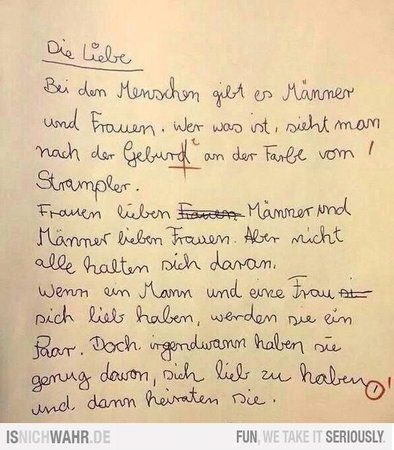 Die Liebe
Bei den Menschen gibt es Männer
und Frauen. Wer was ist, sieht man
nach der Geburd t an der Farbe vom !
Strampler.
Frauen lieben Frauen Männer und
Männer lieben Frauen. Aber nicht
alle halten sich daran.
Wenn ein Mann und eine Frau si
sich lieb haben, werden sie ein
Paar. Doch irgendwann haben sie
genug davon, sich lieb zu haben,
und dann heiraten sie.
ISNICHWAHR.DE FUN, WE TAKE IT SERIOUSLY.